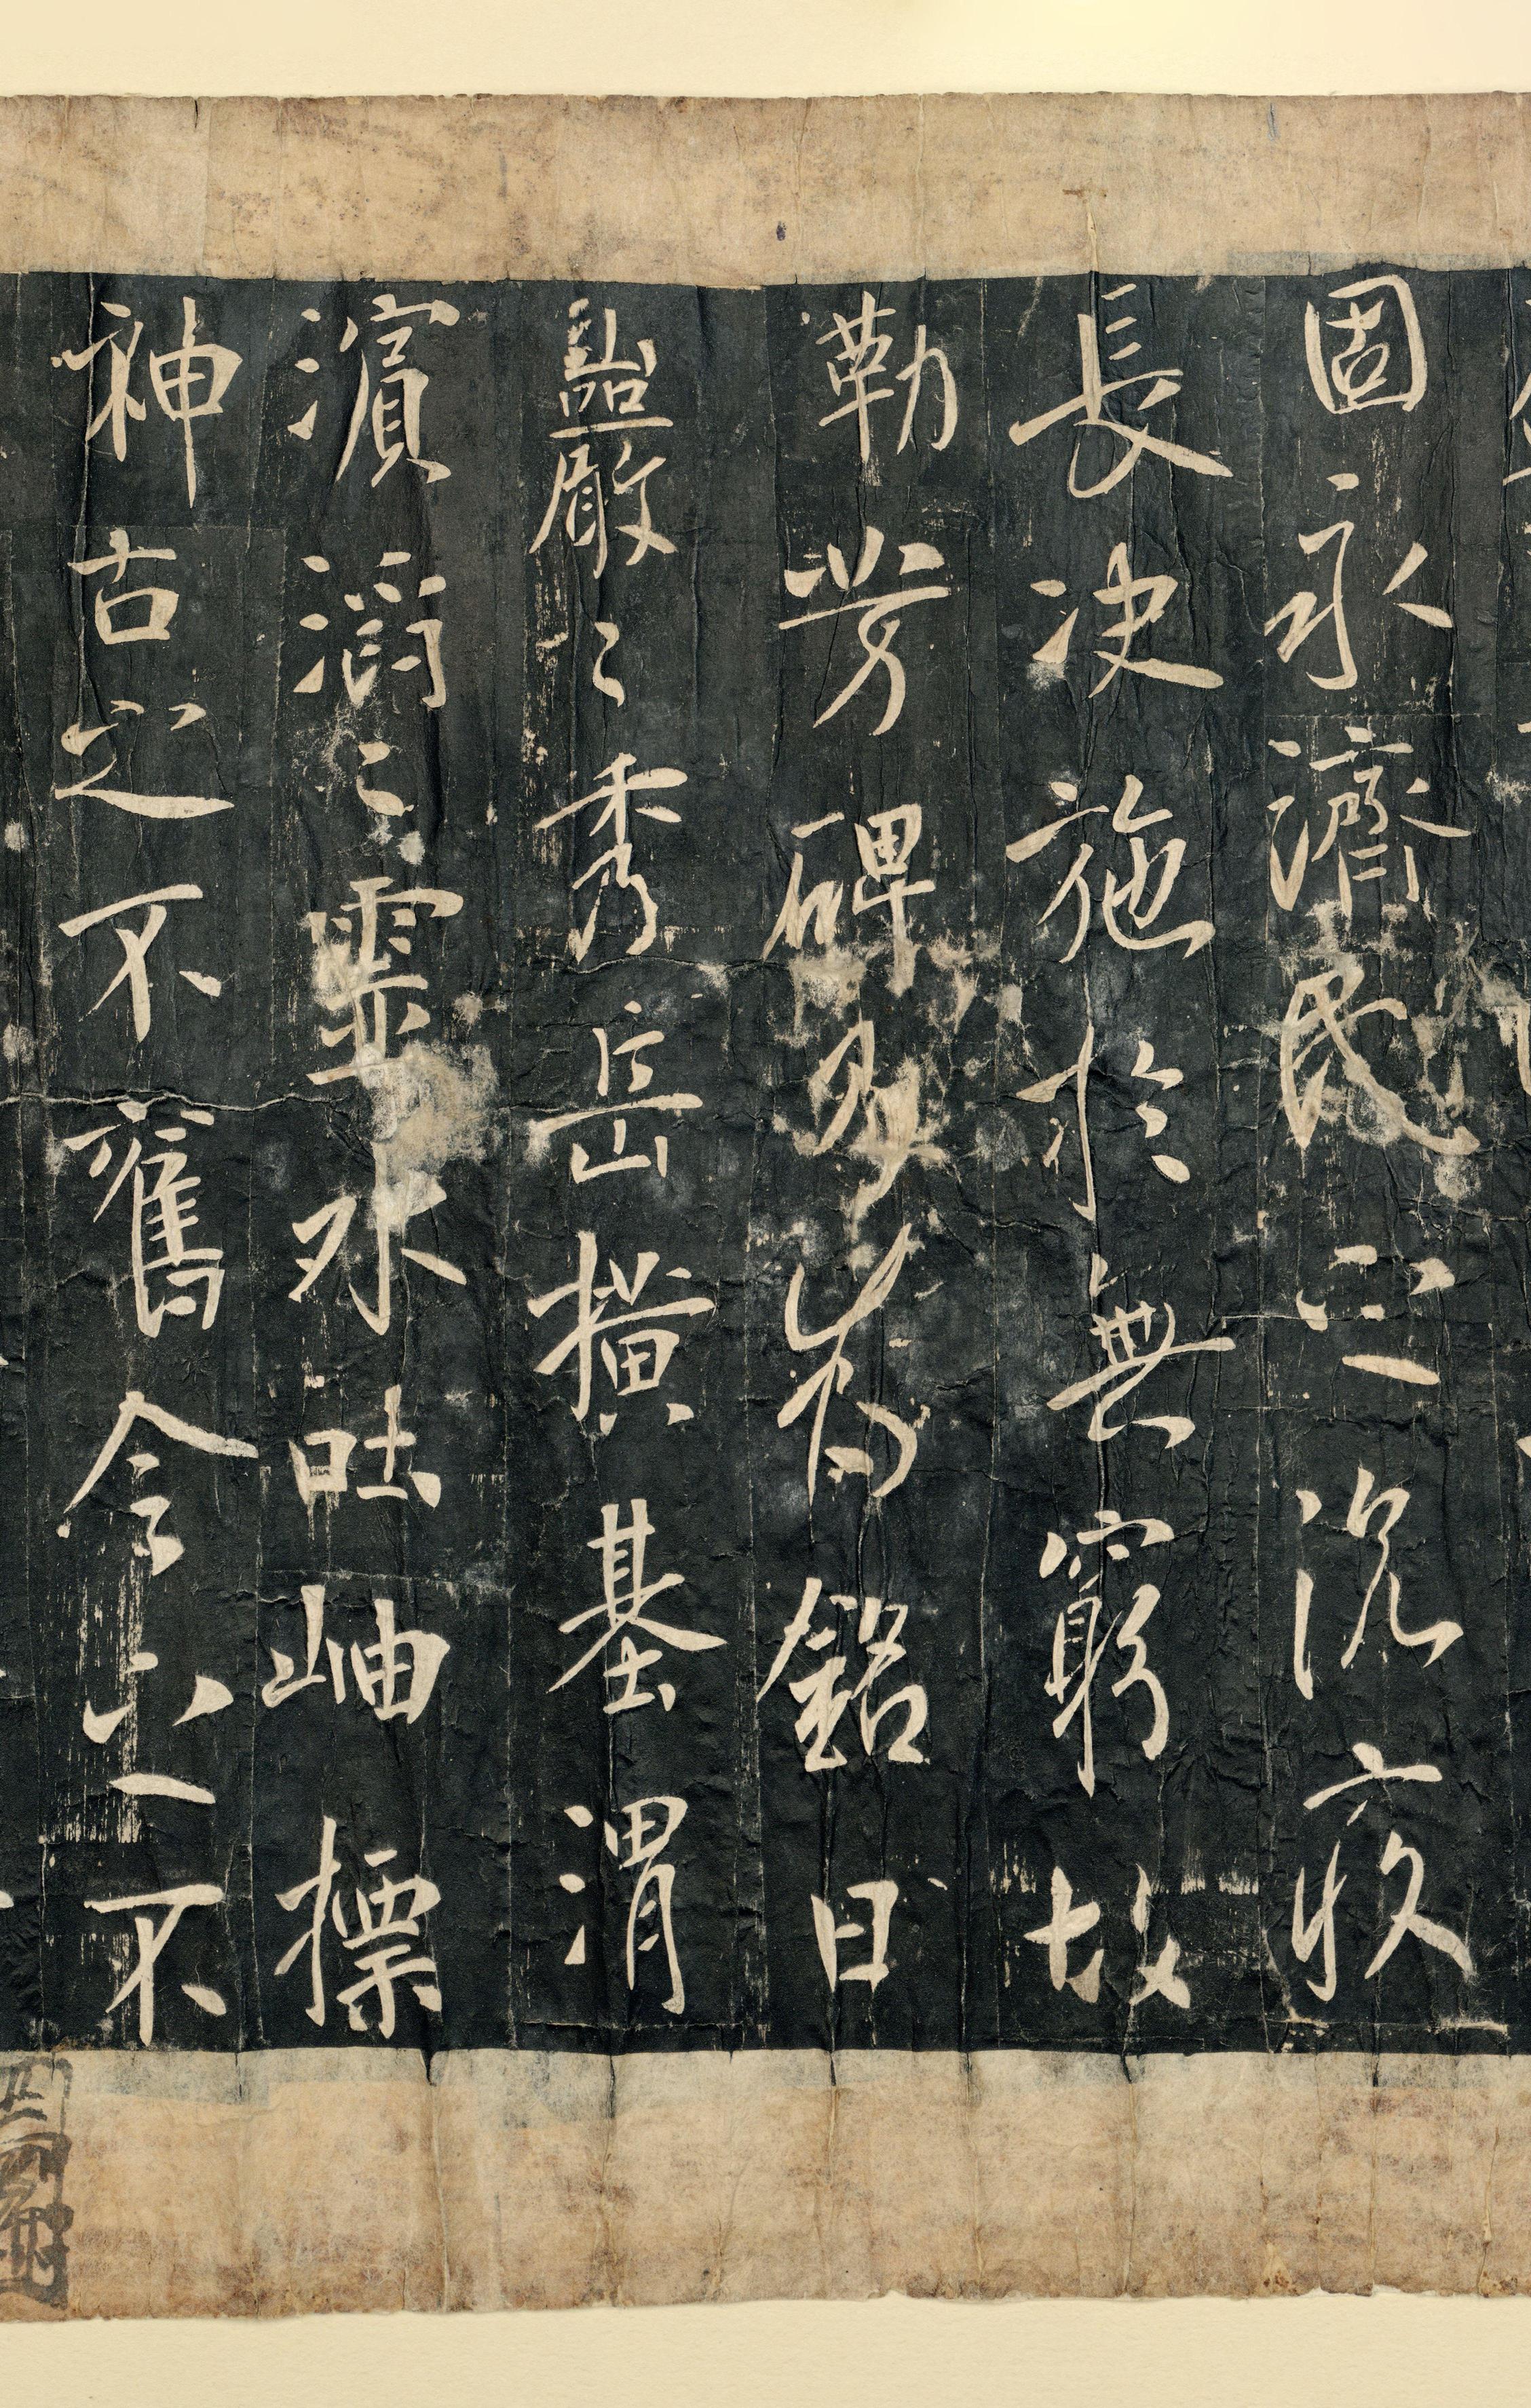 固永濟民之沉疾
長決施於無窮故
勒芳碑為銘曰
巖〻秀岳橫基渭
濱滔〻靈水吐岫標
神古之不舊今之不